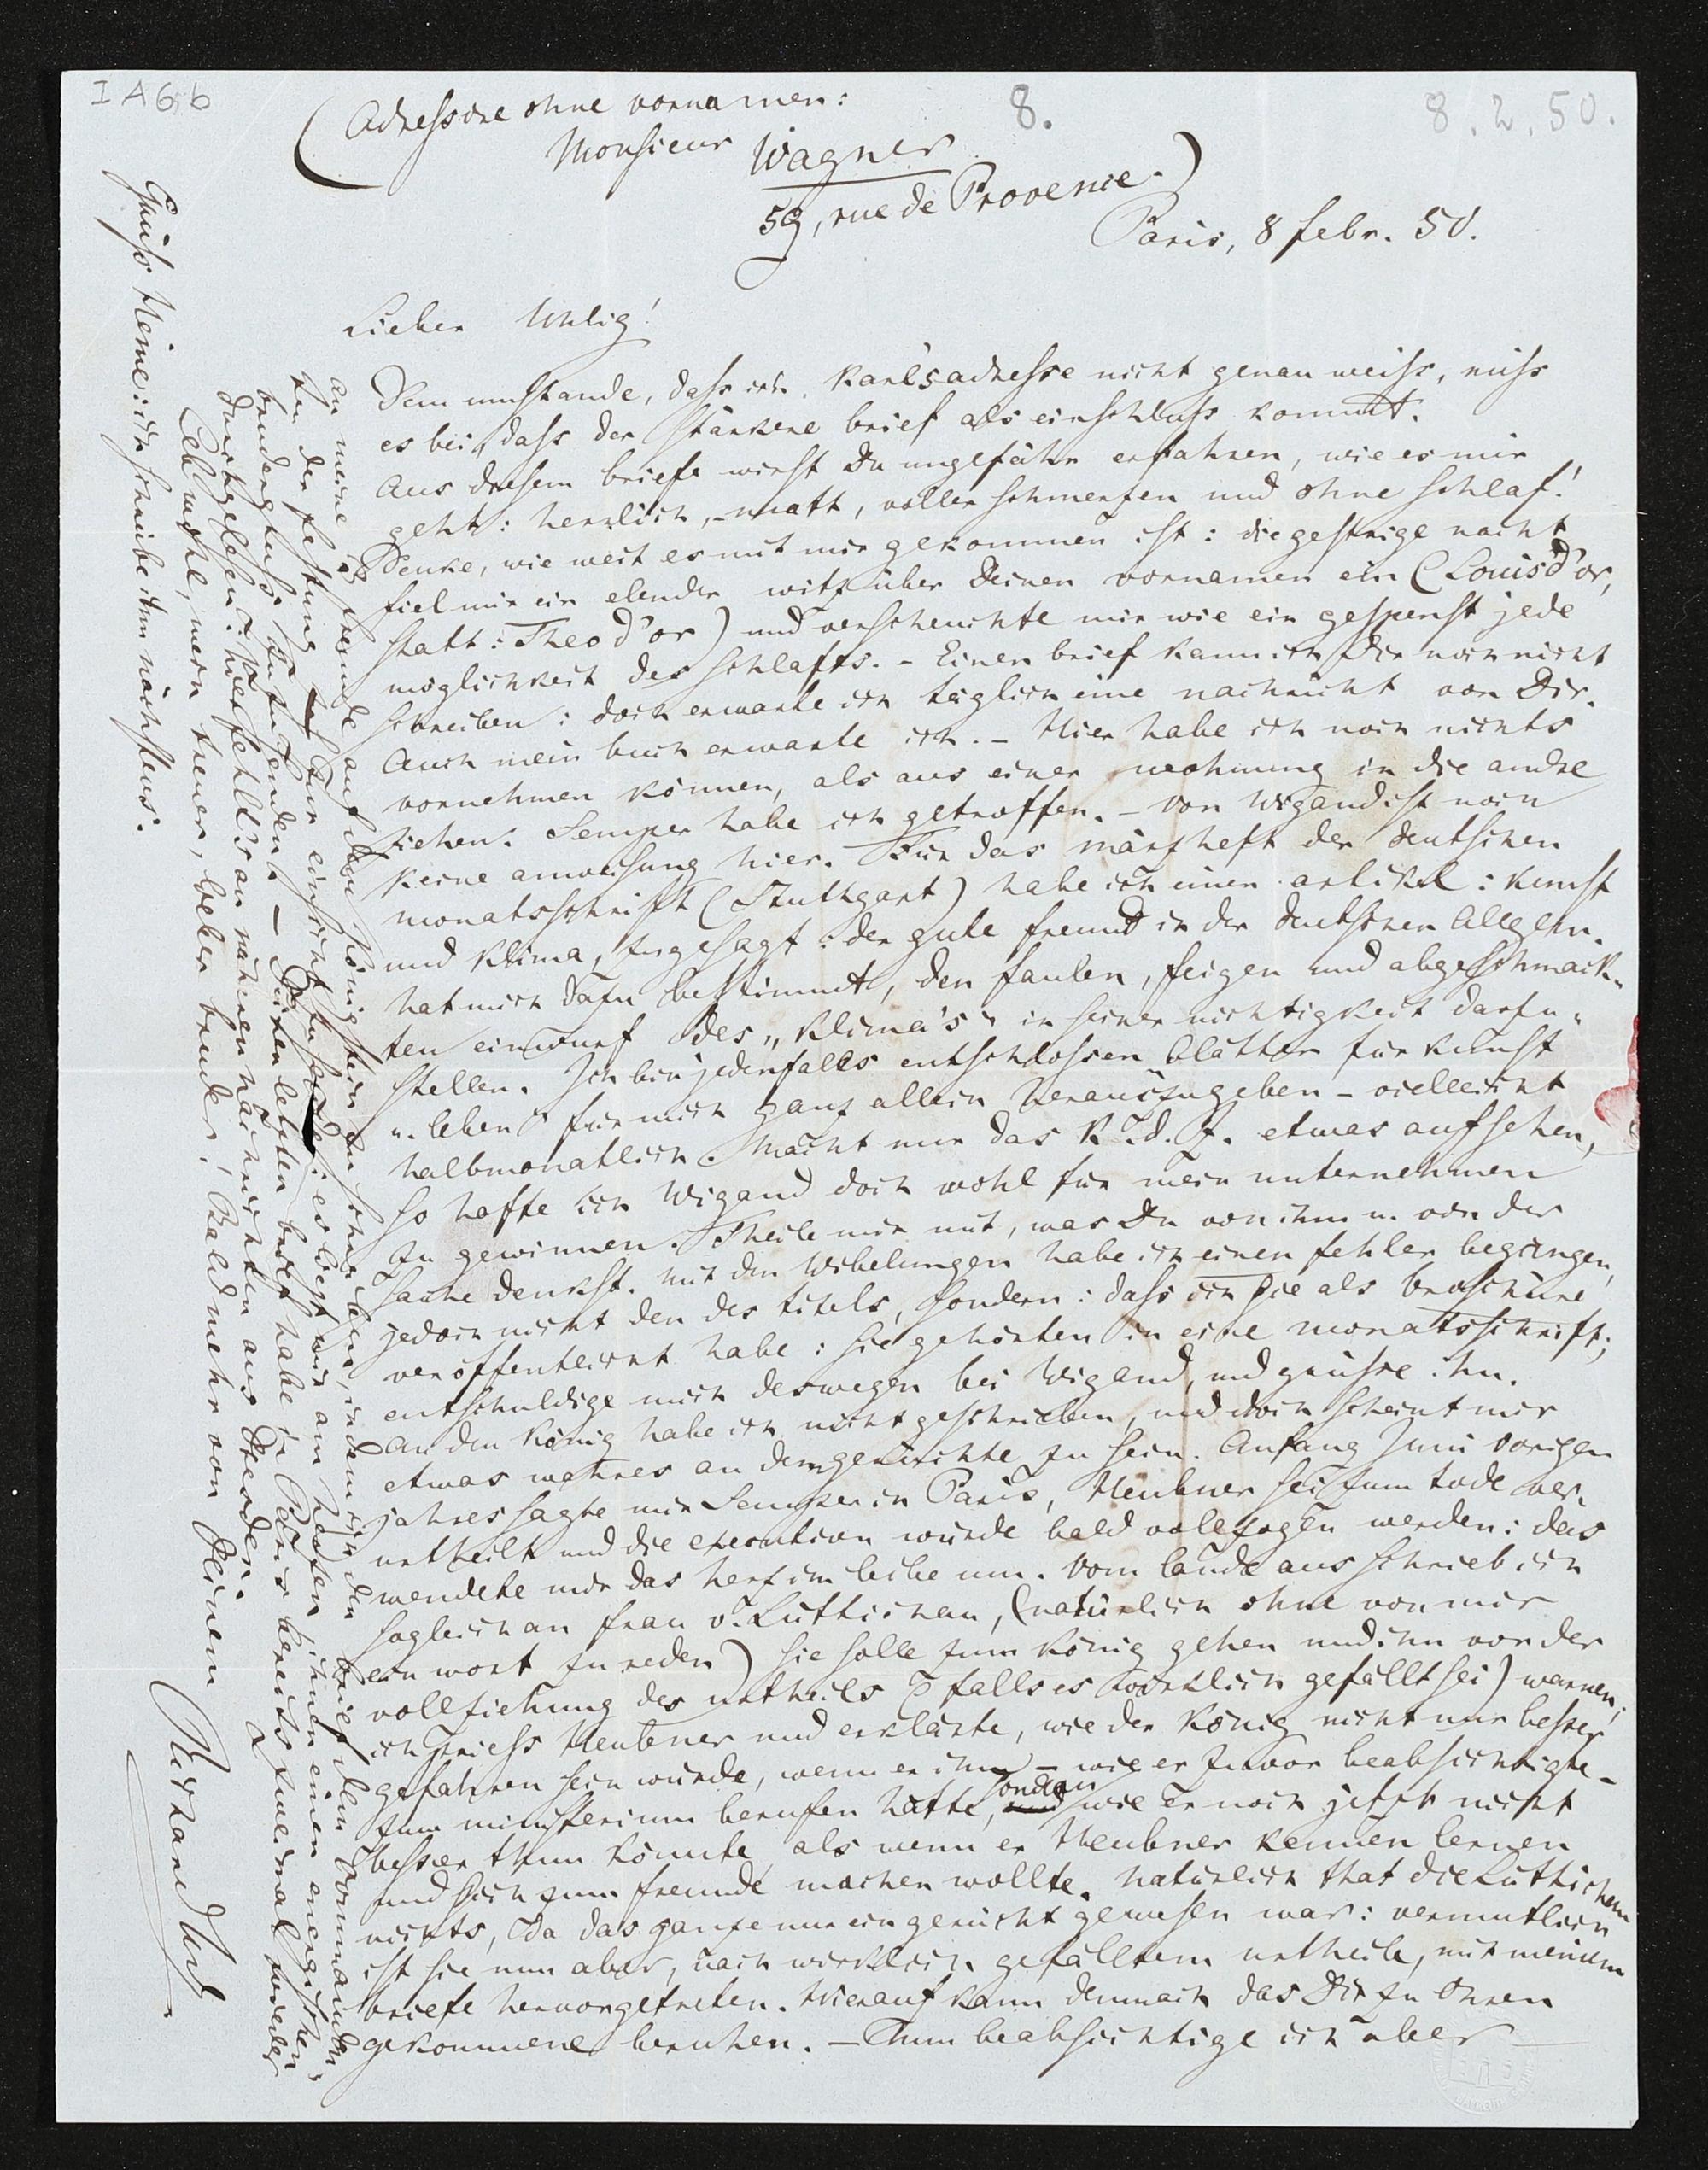 I A 6b
8.
8.2.50.
(Adressire ohne vornamen:
Monsieur Wagner
59, rue de Provence.)
Paris, 8 febr. 50.
Lieber Uhlig!
Dem umstande, dass ich Karl's adresse nicht genau weiss, miss
es bei, dass der stärkere brief als einschluss kommt.
Aus diesem briefe wirst Du ungefähr erfahren, wie es mir
geht: herrlich, – matt, voller schmerzen und ohne schlaf!
Denke, wie weit es mit mir gekommen ist: die gestrige nacht
fiel mir ein elender witz über Deinen vornamen ein (Louisd'or,
statt: Theod'or) und verscheuchte mir wie ein gespenst jede
möglichkeit des schlafes. – Einen brief kann ich Dir noch nicht
schreiben: doch erwarte ich täglich eine nachricht von Dir.
Auch mein buch erwarte ich. – Hier habe ich noch nichts
vornehmen können, als aus einer wohnung in die andre
ziehen. Semper habe ich getroffen. – Von Wigand ist noch
keine anweisung hier. Für das märzheft der deutschen
monatsschrift (Stuttgart) habe ich einen artikel: kunst
und klima, zugesagt: der gute freund in der deutschen Allgem.
hat mich dazu bestimmt, den faulen, feigen und abgeschmack-
ten einwurf des „klima's" in seiner nichtigkeit darzu-
stellen. Ich bin jedenfalls entschlossen blätter für kunst
u. leben" für mich ganz allein herauszugeben – vielleicht
halbmonatlich. Macht nur das K. d. Z. etwas aufsehen,
so hoffe ich Wigand doch wohl für mein unternehmen
zu gewinnen. Theile mir mit, was Du von ihm u. von der
sache denkst. Mit den Wibelungen habe ich einen fehler begangen,
jedoch nicht den des titels, sondern: dass ich sie als broschüre
veröffentlicht habe: sie gehörten in eine monatsschrift;
entschuldige mich deswegen bei Wigand, und grüsse ihn.
An den König habe ich nicht geschrieben, und doch scheint mir
etwas wahres an dem gerüchte zu sein. Anfang Juni vorigen
jahres sagte mir Semper in Paris, Heubner sei zum tode ver-
urtheilt und die execution würde bald vollzogen werden: das
wendete mir das herz im leibe um. Vom lande aus schrieb ich
sogleich an frau v. Lüttichau, (natürlich ohne von mir
ein wort zu reden) sie solle zum König gehen und ihn von der
vollziehung des urtheils (falls es wirklich gefällt sei) warnen;
ich priess Heubner und erklärte, wie der König nicht nur besser
gefahren sein würde, wenn er ihn – wie er zuvor beabsichtigte –
zum ministerium berufen hätte, sondern wie er noch jetzt nicht
besser thun könnte, als wenn er Heubner kennen lernen
und sich zum freunde machen wollte. Natürlich that die Lüttichau
nichts, da das ganze nur ein gerücht gewesen war: vermuthlich
ist sie nun aber, nach wirklich gefälltem urtheile, mit meinem
briefe hervorgetreten. Hierauf kann demnach das Dir zu Ohren
gekommene beruhen. – Nun beabsichtige ich aber
an meine freunde auf dem Königstein zu schreiben, indem ich den brief dem Commandan-
ten der festung zur einsicht zusende: es liegt mir am herzen ihnen einen energischen
brudergruss zuzusenden. – Deinen letzten brief habe ich in Paris bereits zweimal wieder
durchgelesen: hier fehlt's an näheren nachrichten aus Dresden.
Leb wohl, mein treuer, lieber bruder! Bald mehr von Deinem
Richard W
Grüss Heine: ich schreibe ihm nächstens.